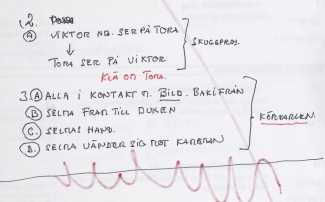 2.
Ⓐ VIKTOR NG. SER PÅ TORA
↓
TORA SER PÅ VIKTOR
SKUGGPROJ.
KLÄ OM TORA.
3. Ⓐ ALLA I KONTAKT M. BILD. BAKIFRÅN
Ⓑ SELMA FRAM TILL DUKEN
Ⓒ SELMAS HAND.
Ⓓ SELMA VÄNDER SIG MOT KAMERAN
KÖRKARLEN.